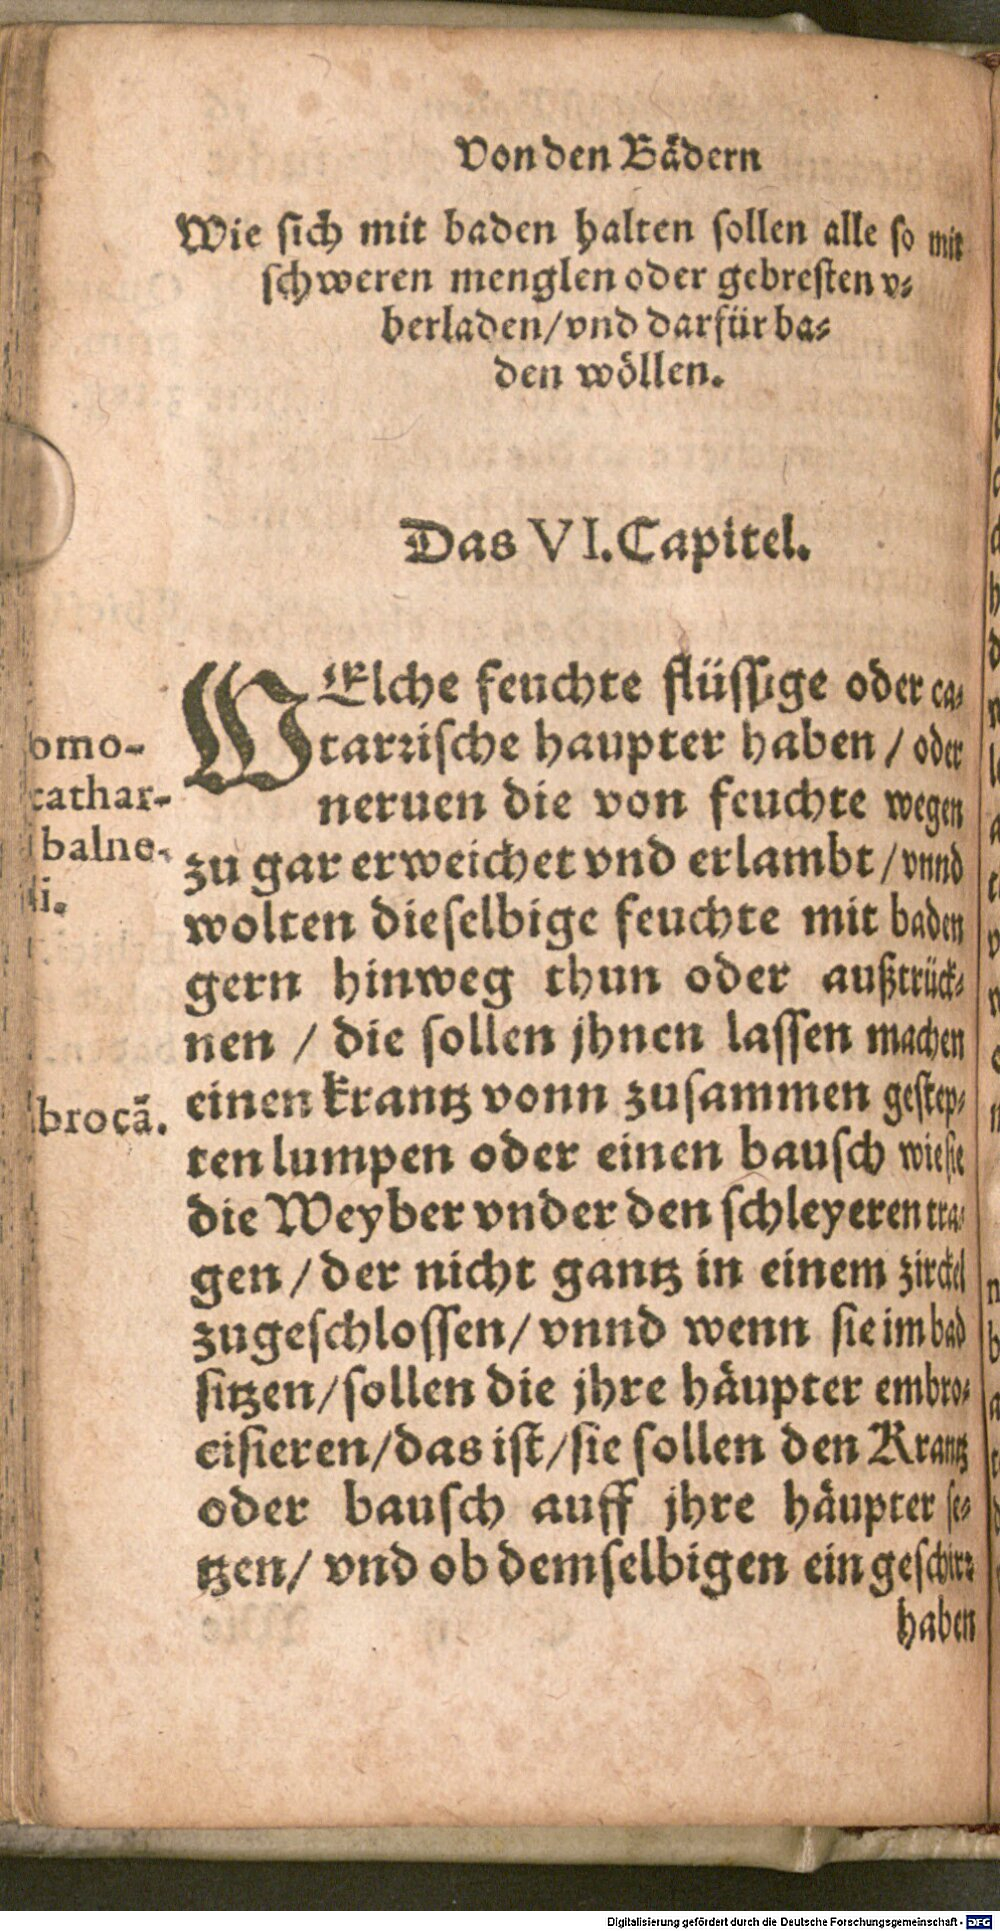 Von den Bädern
Wie sich mit baden halten sollen alle so mit
schweren menglen oder gebresten v⸗
berladen/vnd darfür ba⸗
den wöllen.
Das VI. Capitel.
WElche feuchte flüssige oder ca⸗
tarrische haupter haben / oder
neruen die von feuchte wegen
zu gar erweichet vnd erlambt / vnnd
wolten dieselbige feuchte mit baden
gern hinweg thun oder außtrück⸗
nen / die sollen jhnen lassen machen
einen krantz vonn zusammen gestep⸗
ten lumpen oder einen bausch wie sie
die Weyber vnder den schleyeren tra⸗
gen / der nicht gantz in einem zirckel
zugeschlossen / vnnd wenn sie im bad
sitzen / sollen die jhre häupter embro⸗
cisieren / das ist / sie sollen den Krantz
oder bausch auff jhre häupter se⸗
tzen / vnd ob demselbigen ein geschirr
haben
omo-
cathar-
balne-
i.
brocā.
Digitalisierung gefördert durch die Deutsche Forschungsgemeinschaft - DFG